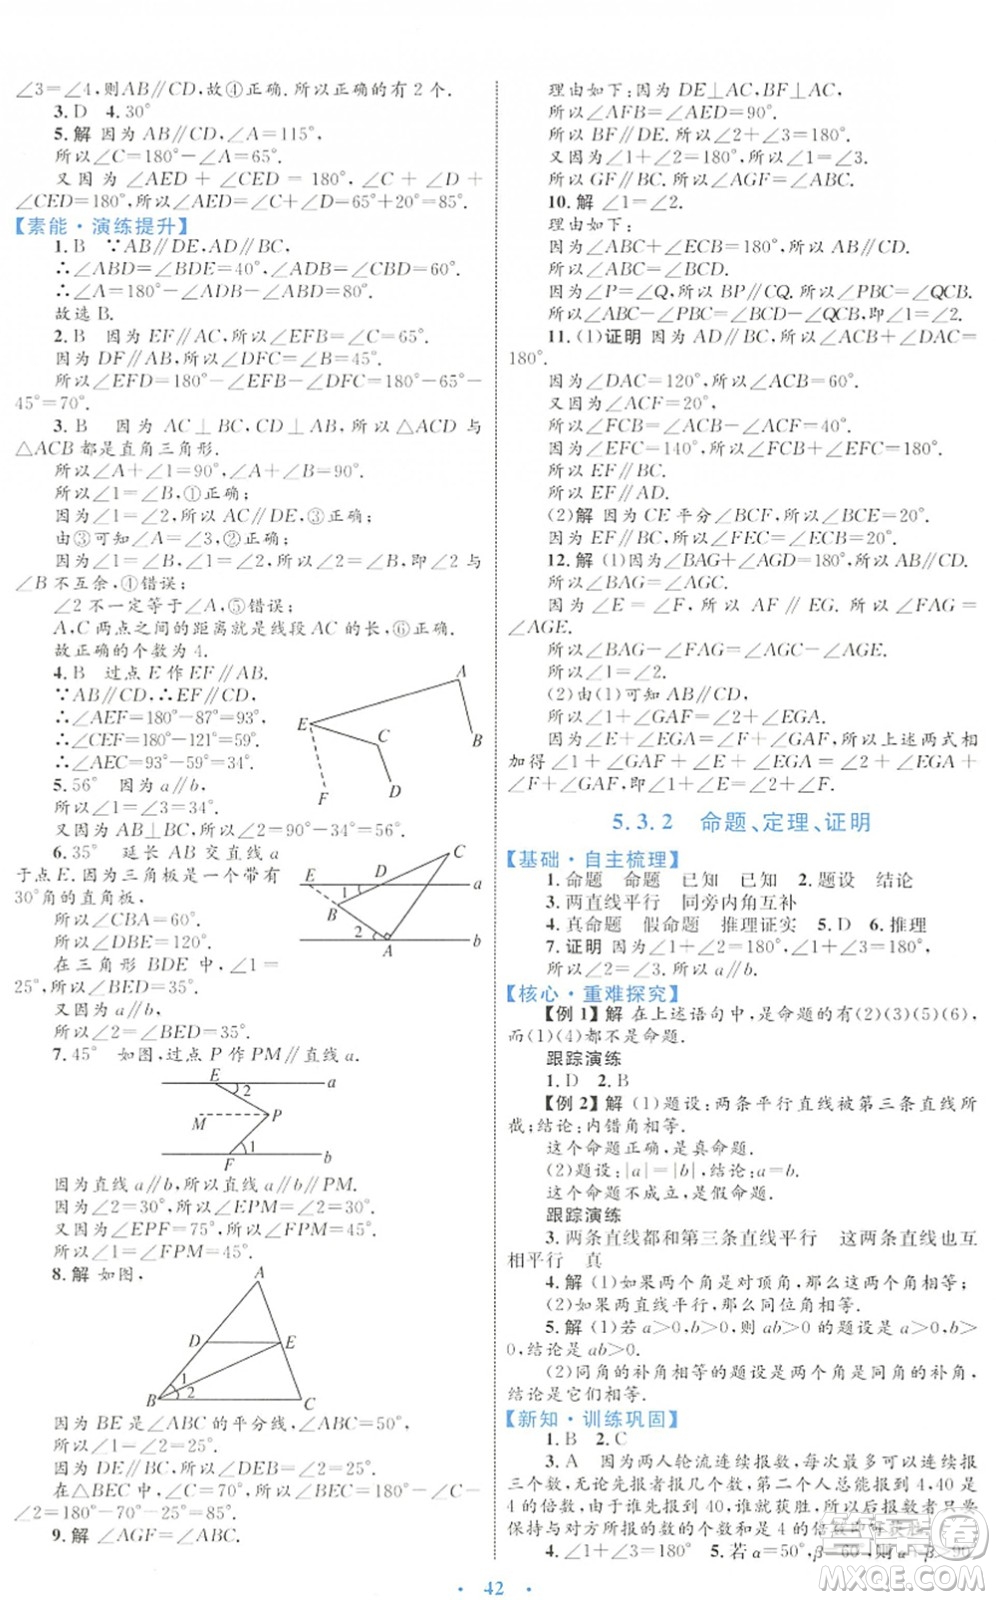 ∠3=∠4,则AB∥CD,故④正确.所以正确的有2个.
3.D 4.30°
5.解 因为AB∥CD,∠A=115°,
所以∠C=180°-∠A=65°.
又因为∠AED+∠CED=180°,
∠CED=180°,所以∠AED=∠C+∠D=65°+20°=85°.
【素能·演练提升】
1.B ∵AB∥DE,AD∥BC,
∴∠ABD=∠BDE=40°,∠ADB=∠CBD=60°.
∴∠A=180°-∠ADB-∠ABD=80°.
故选B.
2.B 因为EF∥AC,所以∠EFB=∠C=65°.
因为DF∥AB,所以∠DFC=∠B=45°.
所以∠EFD=180°-∠EFB-∠DFC=180°-65°-
45°=70°.
3.B 因为AC⊥BC,CD⊥AB,所以△ACD与
△ACB都是直角三角形.
所以∠A+∠1=90°,∠A+∠B=90°.
所以∠1=∠B,①正确;
因为∠1=∠2,所以AC∥DE,③正确;
由③可知∠A=∠3,②正确;
因为∠1=∠B,∠1=∠2,所以∠2=∠B,∠2与
∠B不互余,④错误;
∠2不一定等于∠A,⑤错误;
A,C两点之间的距离就是线段AC的长,⑥正确.
故正确的个数为4.
4.B 过点E作EF∥AB.
∵AB∥CD,∴EF∥CD.
∴∠AEF=180°-87°=93°,
∴∠CEF=180°-121°=59°.
∴∠AEC=93°-59°=34°.
5.56° 因为a∥b,
所以∠1=∠3=34°.
因为AB⊥BC,
所以∠2=90°-34°=56°.
6.35° 延长AB交直线a
于点E.因为三角板是一个带有
30°角的直角板,
所以∠CBA=60°.
所以∠DBE=120°.
在三角形BDE中,∠1=
25°,所以∠BED=35°.
又因为a∥b,
所以∠2=∠BED=35°.
7.45° 如图,过点P作PM∥直线a.
因为直线a∥b,所以直线a∥b∥PM.
因为∠2=30°,所以∠EPM=∠2=30°.
又因为∠EPF=75°,所以∠FPM=45°.
所以∠1=∠FPM=45°.
8.解 如图,
因为BE是∠ABC的平分线,∠ABC=50°,
所以∠1=∠2=25°.
因为DE∥BC,所以∠DEB=∠2=25°.
在△BEC中,∠C=70°,所以∠BEC=
∠180°-∠C-∠2=180°-70°-25°=85°.
9.解 ∠AGF=∠ABC.
理由如下:因为DE⊥AC,BF⊥AC,
所以∠AFB=∠AED=90°.
所以BF∥DE.所以∠2+∠3=180°.
又因为∠1+∠2=180°,所以∠1=∠3.
所以GF∥BC.所以∠AGF=∠ABC.
10.解 ∠1=∠2.
理由如下:
因为∠ABC+∠ECB=180°,所以AB∥CD.
所以∠ABC=∠BCD.
因为∠P=∠Q,所以BP∥CQ.所以∠PBC=∠QCB.
所以∠ABC-∠PBC=∠BCD-∠QCB,即∠1=∠2.
11.(1)证明 因为AD∥BC,所以∠ACB+∠DAC=
180°.
因为∠DAC=120°,所以∠ACB=60°.
又因为∠ACF=20°,
所以∠FCB=∠ACB-∠ACF=40°.
因为∠EFC=140°,所以∠FCB+∠EFC=180°.
所以EF∥BC.
所以EF∥AD.
(2)解 因为CE平分∠BCF,所以∠BCE=20°.
12.解 (1)因为∠BAG+∠AGD=180°,所以AB∥CD.
所以∠BAG=∠AGC.
因为∠E=∠F,所以AF∥EG.所以∠FAG=
∠AGE.
所以∠BAG-∠FAG=∠AGC-∠AGE.
所以∠1=∠2.
(2)由(1)可知AB∥CD,AF∥EG.
所以∠1+∠GAF=∠2+∠EGA.
因为∠E+∠EGA=∠F+∠GAF,所以上述两式相
加得∠1+∠GAF+∠E+∠EGA=∠2+∠EGA+
∠F+∠GAF,即∠1+∠E=∠2+∠F.
5.3.2 命题、定理、证明
【基础·自主梳理】
1.命题 命题 已知 已知 2.题设 结论
3.两直线平行 同旁内角互补
4.真命题 假命题 推理证实 5.D 6.推理
7.证明 因为∠1+∠2=180°,∠1+∠3=180°,
所以∠2=∠3.所以a∥b.
【核心·重难探究】
【例1】解 在上述语句中,是命题的有(2)(3)(5)(6),
而(1)(4)都不是命题.
跟踪演练
1.D 2.B
【例2】解 (1)题设:两条平行直线被第三条直线所
截;结论:内错角相等.
这个命题正确,是真命题.
(2)题设:|a|=|b|,结论:a=b.
这个命题不成立,是假命题.
跟踪演练
3.两条直线都和第三条直线平行 这两条直线也互
相平行 真
4.解 (1)如果两个角是对顶角,那么这两个角相等;
(2)如果两直线平行,那么同位角相等.
5.解 (1)若a>0,b>0,则ab>0的题设是a>0,
b>0,结论是ab>0.
(2)同角的补角相等的题设是两个角是同角的补角,
结论是它们相等.
【新知·训练巩固】
1.B 2.C
3.A 因为两人轮流连续报数,每次最多可以连续报
三个数,无论先报者报几个数,第二个人总能报到4,40是
4的倍数,由于谁先报到40,谁就获胜,所以后报数者只要
保持与对方所报的数的个数和为4的倍数即可获胜.
4.∠1+∠3=180° 5.若α=50°,β=60°,则α+β>90°
A
E
C
B
D
F
C
E D a
1
B
2 b
A
E a
2
M P
1
F b
A
D E
1
B 2 C
· 42 ·
答案圈
MXQE.COM